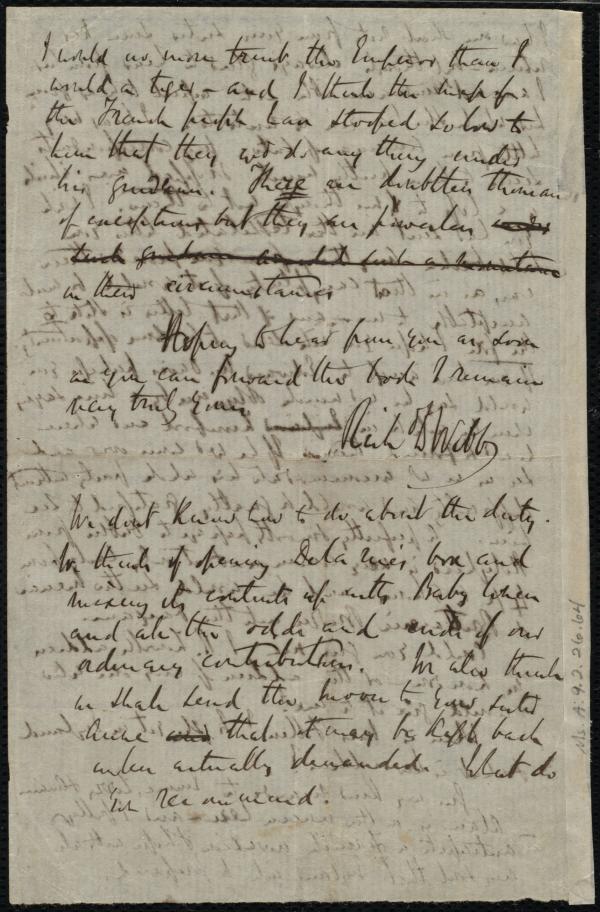 I would no more trust the Emperor than I
would a tiger - and I think the mass of
the French people have stooped so low to
him that they wd do any thing under
his guidance. There are doubtless thousands
of exceptions but they are powerless
such would such a
in these circumstances
Hoping to hear from you as soon
as you can forward the book I remain
very truly yours
Richd D Webb
We dont know how to do about the duty.
We think of opening Dela Rue's box and
mixing its contents up with Baby linen
and all the odds and ends of our
ordinary contributions. We also think
we shall send the invoice to your sister
Anne and that it may be kept back
when actually demanded. What do
you recommend.
Ms. A. 9. 2. 26. 64